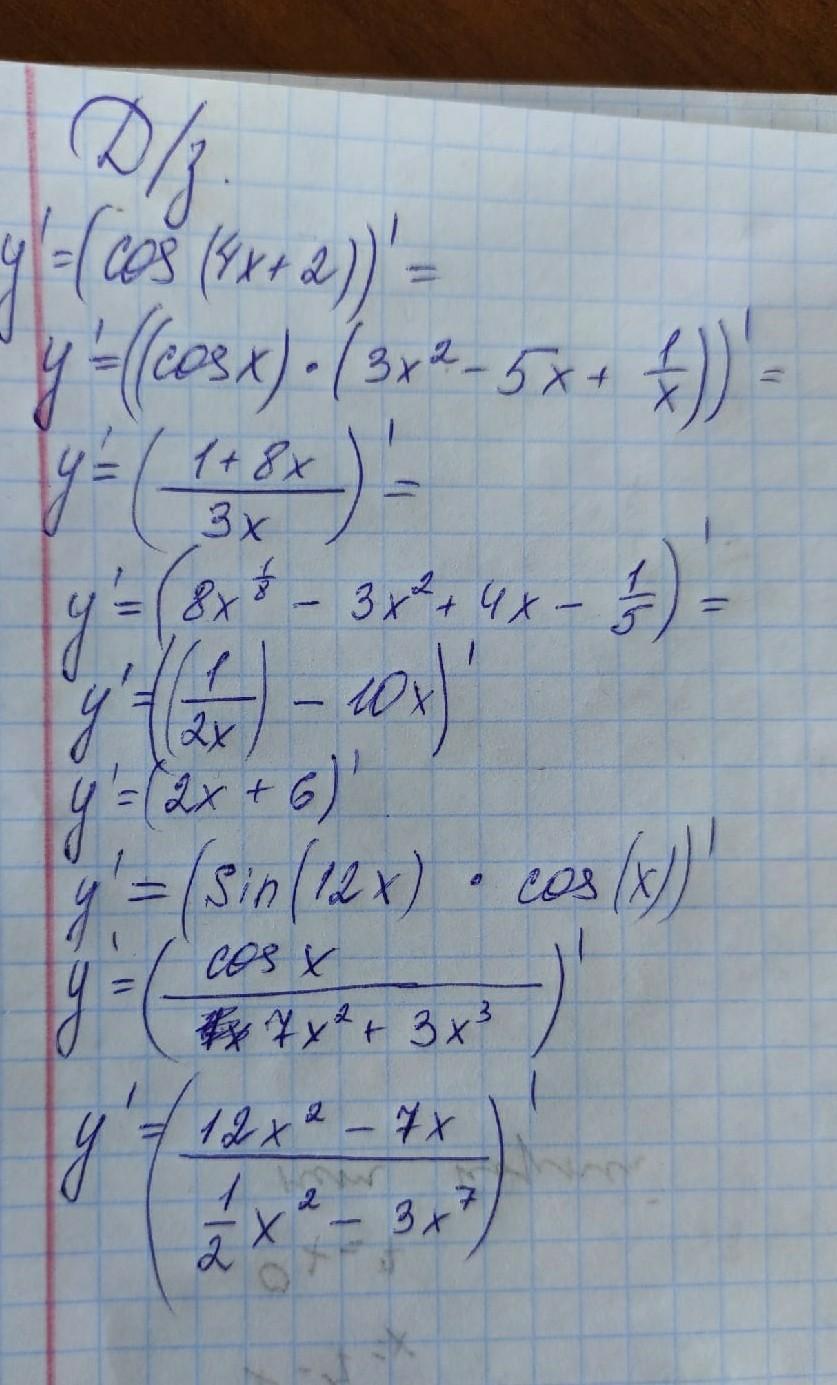 Д/з.
y' = (cos (4x + 2))' =
y' = ((cos x) · (3x² - 5x + 1/x))' =
y' = ((1 + 8x)/(3x))' =
y' = (8x^(1/8) - 3x² + 4x - 1/5)' =
y' = ((1/(2x)) - 10x)'
y' = (2x + 6)'
y' = (sin(12x) · cos(x))'
y' = (cos x/(7x² + 3x³))'
y' = ((12x² - 7x)/(1/2 x² - 3x⁷))'